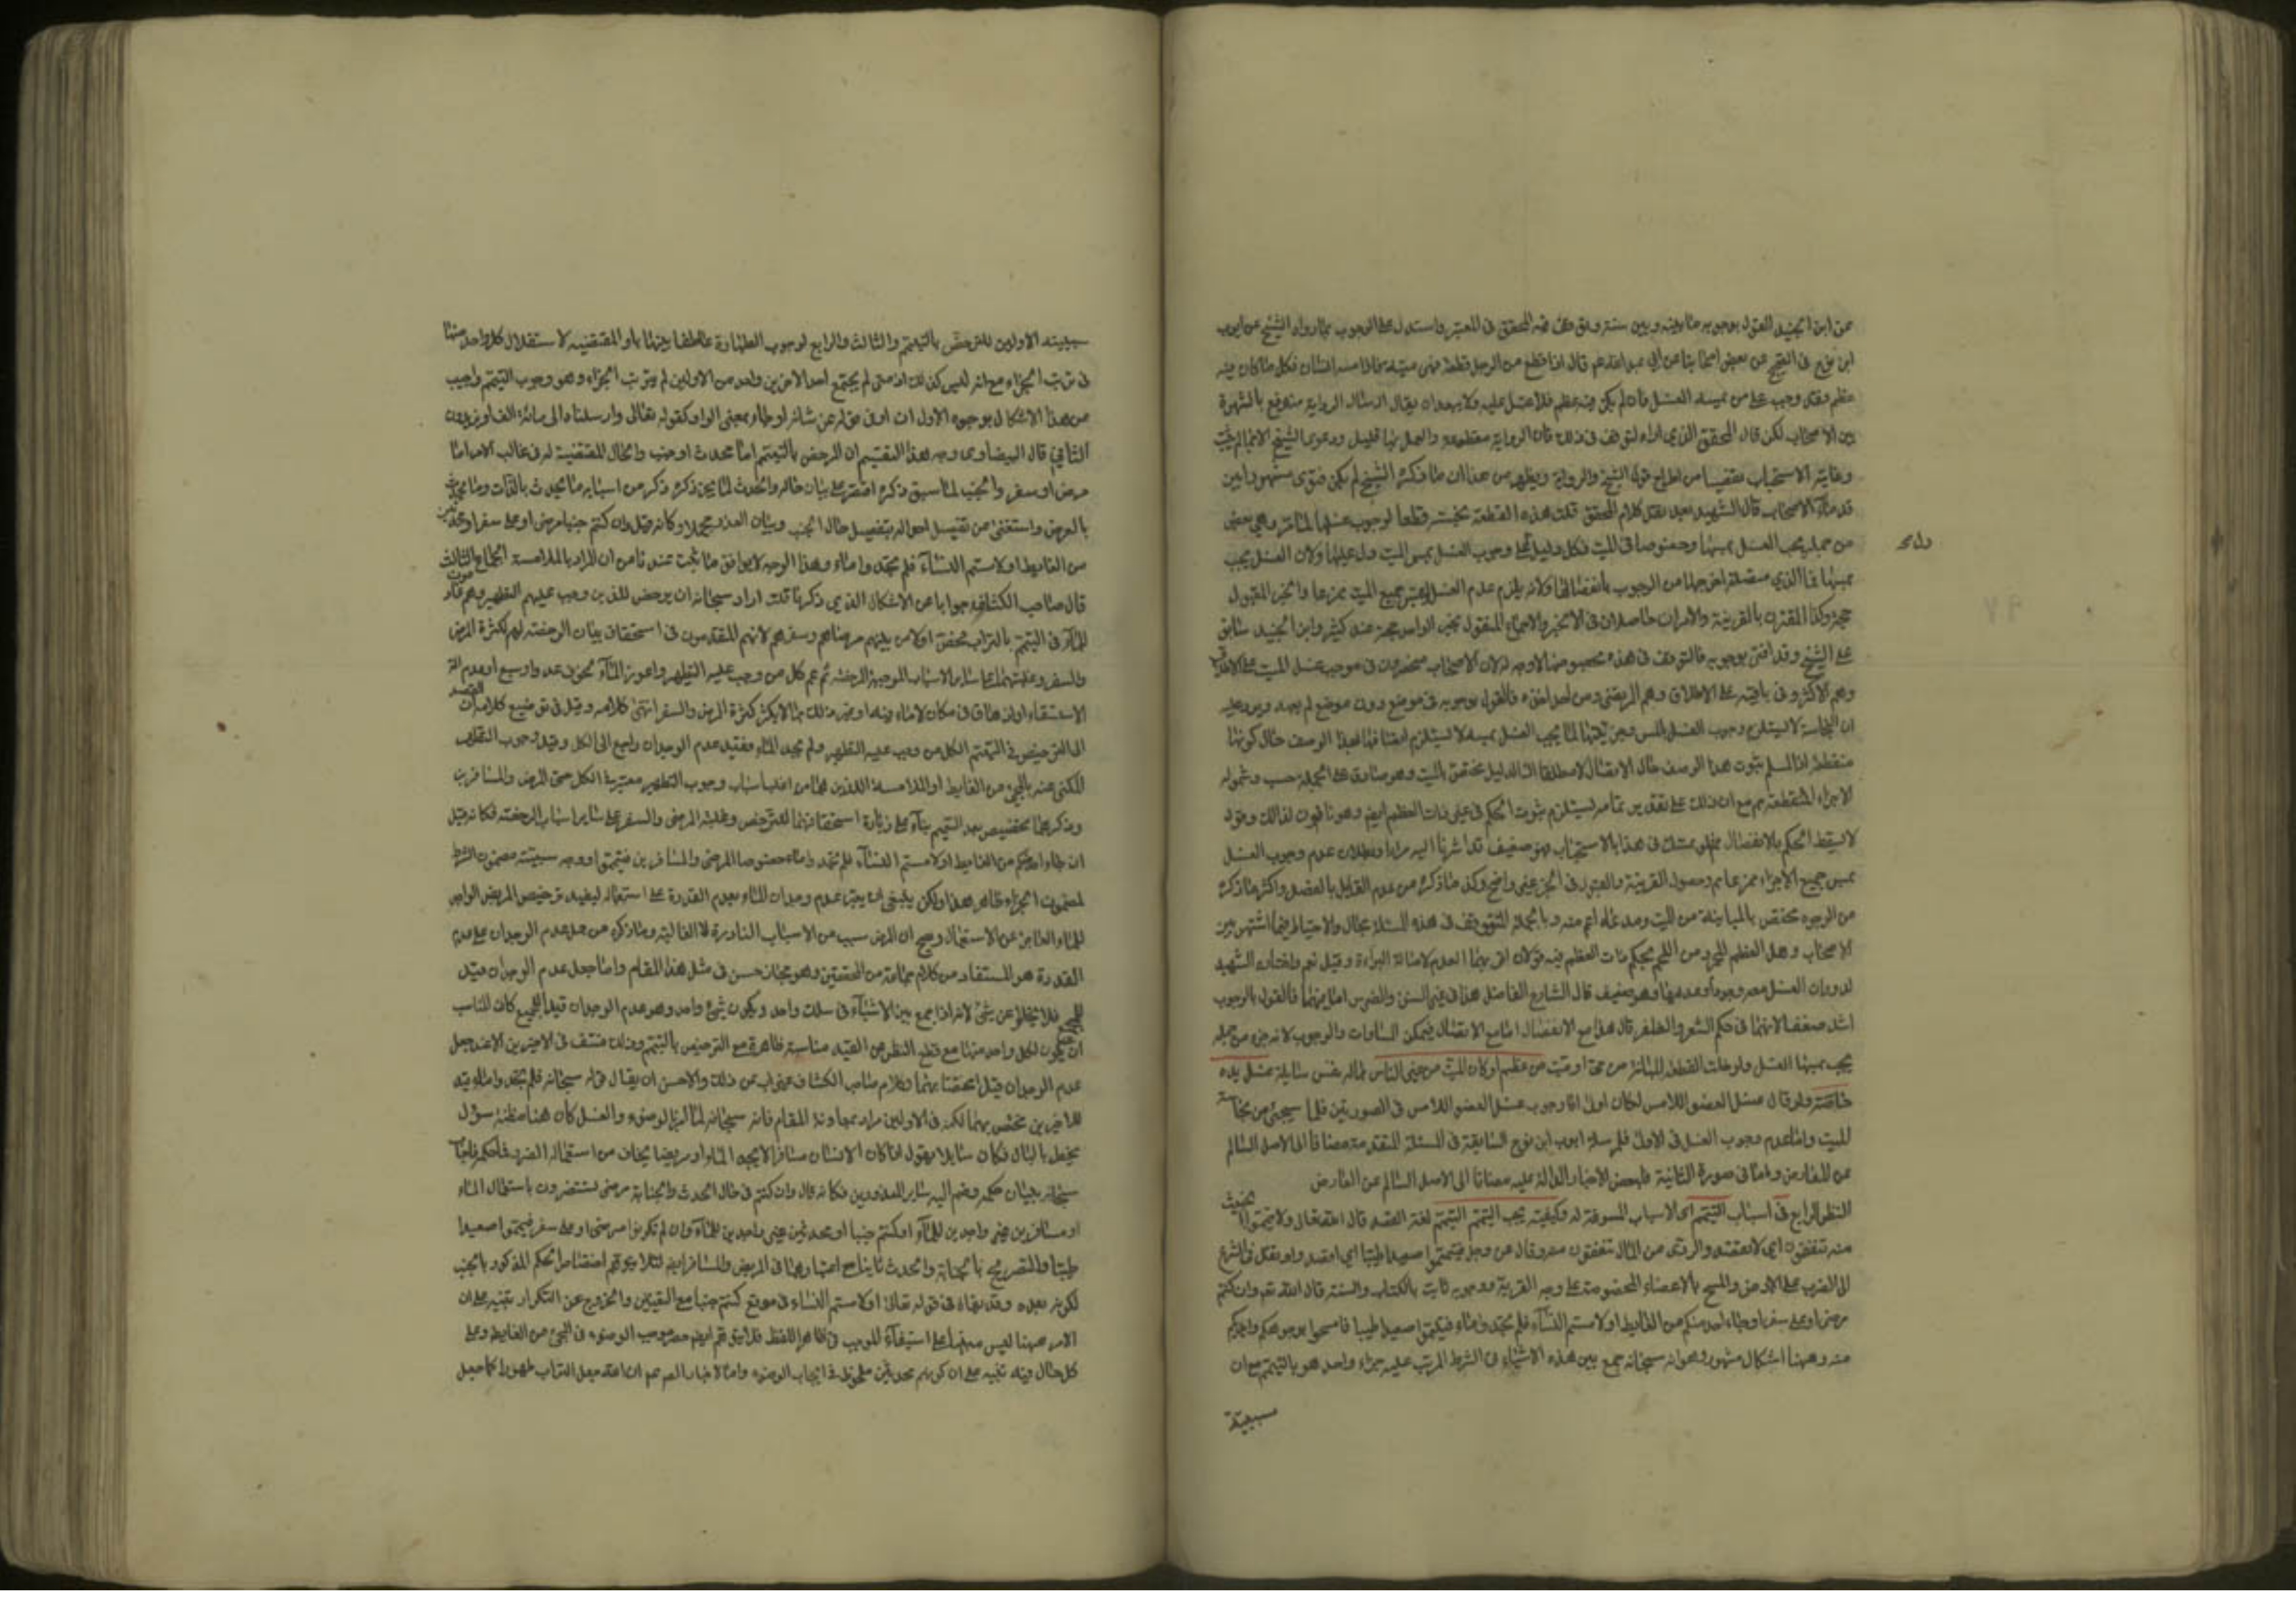 عن ابن الجنيد القول بوجوبه ما بينه وبين سنة وتوقف فيه المحقق في المعتبر واستدل على الوجوب بما رواه الشيخ عن ايوب
ابن نوح في الصحيح عن بعض اصحابنا عن ابي عبد الله عم قال اذا قطع من الرجل قطعة فهي ميتة فاذا مسه انسان فكل ما كان فيه
عظم فقد وجب على من يمسه الغسل فان لم يكن فيه عظم فلا غسل عليه ولا يبعد ان يقال ارسال الرواية منجبر بالشهرة
بين الاصحاب لكن قال المحقق الذي اراه التوقف في ذلك فان الرواية مقطوعة والعمل بها قليل ودعوى الشيخ الاجماع لم يثبت
وغاية الاستحباب تفصيا من اطراح قول الشيخ والرواية ويظهر من هذا ان ما ذكره الشيخ لم يكن فتوى مشهورا بين
قدماء الاصحاب قال الشهيد بعد نقل كلام المحقق قلت هذه القطعة نجسة قطعا لوجوب غسلها لما مر وهي بعض
من جملة يجب الغسل بمسها وخصوصا في الميت فكل دليل دل على وجوب الغسل بمس الميت دل عليها ولان الغسل يجب
بمسها متصلة اخرجها من الوجوب بانفصالها ولانه يلزم عدم الغسل بمس جميع الميت ممزعا والخبر المقبول
حجة وكذا المقترن بالقرينة والامران حاصلان في الاخير والاجماع المنقول بخبر الواحد حجة عند كثير وابن الجنيد سابق
على الشيخ وقد افتى بوجوبه فالتوقف في هذه لا وجه له لان الاصحاب منحصرون في موجب غسل الميت على الاطلاق
وهم الاكثر وفي نافيه على الاطلاق وهو المرتضى ومن اخذ اخذه فالقول بوجوبه في موضع دون موضع لم يعهد ويرد عليه
ان النجاسة لا يستلزم وجوب الغسل بالمس وجزئيتها لما يجب الغسل بمسه لا يستلزم اتصافها بهذا الوصف حال كونها
منقطعة اذ المسلم ثبوت هذا الوصف حال الاتصال لا مطلقا اذ الدليل مختص بالميت وهو صادق على الجملة حسب وشموله
الاجزاء المنقطعة مم مع ان ذلك على تقدير تمامه يستلزم ثبوت الحكم في غير ذات العظم ايضا وهو نافون لذلك وقوله
لا يسقط الحكم بالانفصال تمسك في هذا بالاستصحاب فهو ضعيف قد اشرنا اليه مرارا وبطلان عدم وجوب الغسل
بمس جميع الاجزاء ممزعا مم وحصول القرينة والقبول في الخبر غير واضح وكذا ما ذكره من عدم القائل بالفصل واكثر ما ذكره
من الوجوه مختص بالمباينة من الميت ومدعاه اعم منه وبالجملة للتوقف في هذه المسئلة مجال والاحتياط فيما اشتهر بين
الاصحاب وهل العظم المجرد من اللحم بحكم ذات العظم فيه قولان اقربهما العدم لاصالة البراءة وقيل نعم واختاره الشهيد
لدوران الغسل معه وجودا وعدما وهو ضعيف قال الشارح الفاضل هذا في غير السن والضرس اما فيهما فالقول بالوجوب
اشد ضعفا لانهما في حكم الشعر والظفر قال هذا مع الانفصال اما مع الاتصال فيمكن المساوات والوجوب لانه جزء من جملة
يجب بمسها الغسل ولو خلت القطعة المبانة من حي او ميت من عظم او كان الميت من غير الناس مما له نفس سايلة غسل يده
خاصة ولو قال غسل العضو اللامس لكان اولى اما وجوب غسل العضو اللامس في الصورتين فلما سيجئ من نجاسة
الميت واما عدم وجوب الغسل في الاولى فلمرسلة ايوب ابن نوح السابقة في المسئلة المتقدمة مضافا الى الاصل السالم
عن المعارض واما في صورة الثانية فلبعض الاخبار الدالة عليه مضافا الى الاصل السالم عن المعارض
النظر الرابع في اسباب التيمم اي الاسباب المسوغة له وكيفيته يجب التيمم التيمم لغة القصد قال الله تعالى ولا تيمموا الخبيث
منه تنفقون اي لا تقصدوا الردئ من المال تنفقون منه وقال عز وجل فتيمموا صعيدا طيبا اي اقصدوا ونقل في الشرع
الى الضرب على الارض والمسح بالاعضاء المخصوصة على وجه القربة ووجوبه ثابت بالكتاب والسنة قال الله تعم وان كنتم
مرضى او على سفر او جاء احد منكم من الغايط او لامستم النساء فلم تجدوا ماء فتيمموا صعيدا طيبا فامسحوا بوجوهكم وايديكم
منه وههنا اشكال مشهور وهو انه سبحانه جمع بين هذه الاشياء في الشرط المرتب عليه جزاء واحد هو بالتيمم مع ان
سببية
سببية الاولين للترخص بالتيمم والثالث والرابع لوجوب الطهارة عاطفا بينها باو المقتضية لاستقلال كل واحد منها
في ترتب الجزاء مع انه ليس كذلك اذ متى لم يجتمع احد الاخرين واحد من الاولين لم يترتب الجزاء وهو وجوب التيمم واجيب
عن هذا الاشكال بوجوه الاول ان او في قوله عز شانه او جاء بمعنى الواو كقوله تعالى وارسلناه الى مائة الف او يزيدون
الثاني قال البيضاوي وجه هذا التقسيم ان المرخص بالتيمم اما محدث او جنب والحال المقتضية له في غالب الامر اما
مرض او سفر والجنب لما سبق ذكره اقتصر على بيان حاله والمحدث لما لم يجر ذكره ذكر من اسبابه ما يحدث بالذات وما يحدث
بالعرض واستغنى عن تفصيل احواله بتفصيل حال الجنب وبيان العذر مجملا وكانه قيل وان كنتم جنبا مرضى او على سفر او محدثين
من الغايط او لامستم النساء فلم تجدوا ماء وهذا الوجه لا يوافق ما ثبت عندنا من ان المراد بالملامسة الجماع الثالث
قال صاحب الكشاف جوابا عن الاشكال الذي ذكرنا قلت اراد سبحانه ان يرخص للذين وجب عليهم التطهر وهم عادمون
للماء في التيمم بالتراب فخص اولا من بينهم مرضاهم وسفرهم لانهم المتقدمون في استحقاق بيان الرخصة لهم لكثرة المرض
والسفر وغلبتهما على سائر الاسباب الموجبة للرخصة ثم عم كل من وجب عليه التطهر واعوزه الماء لخوف عدو او سبع او عدم آلة
الاستسقاء او ارهاق في مكان لا ماء فيه او غير ذلك مما لا يكثر كثرة المرض والسفر انتهى كلامه وقيل في توضيح كلامه ان القصد
الى الترخيص في التيمم لكل من وجب عليه التطهر ولم يجد الماء فقيد عدم الوجدان راجع الى الكل وقيد وجوب التطهر
المكنى عنه بالمجئ من الغايط او الملامسة اللذين هما من اغلب اسباب وجوب التطهر معتبر في الكل حتى المرضى والمسافرين
وذكرهما تخصيص بعد التعميم بناء على زيادة استحقاقهما للترخص وغلبة المرض والسفر على سائر اسباب الرخصة فكانه قيل
ان جاء احدكم من الغايط او لامستم النساء فلم تجدوا ماء خصوصا المرضى والمسافرين فتيمموا ووجه سببية مضمون الشرط
لمضمون الجزاء ظاهر هذا ولكن ينبغي ان يعبر عدم وجدان الماء بعدم القدرة على استعماله ليفيد ترخيص المريض الواجد
للماء العاجز عن الاستعمال وصح ان المرض سبب من الاسباب النادرة لا الغالبة وما ذكره من حمل عدم الوجدان على عدم
القدرة هو المستفاد من كلام جماعة من المحققين وهو مجاز حسن في مثل هذا المقام واما جعل عدم الوجدان قيد
للجميع فلا يخلو عن شئ لانه اذا جمع بين الاشياء في سلك واحد ويكون شئ واحد وهو عدم الوجدان قيدا للجميع كان المناسب
ان يكون لكل واحد منها مع قطع النظر عن القيد مناسبة ظاهرة مع الترخيص بالتيمم وذلك منتف في الاخيرين الا عند جعل
عدم الوجدان قيدا مختصا بهما وكلام صاحب الكشاف غير اب عن ذلك والاحسن ان يقال قوله سبحانه فلم تجدوا ماء قيد
للاخيرين مختص بهما لكنه في الاولين مراد بمعاونة المقام فانه سبحانه لما امر بالوضوء والغسل كان هنا مظنة سؤال
يخطر بالبال فكان سائلا يقول اذا كان الانسان مسافرا لا يجد الماء او مريضا يخاف من استعماله الضرر فما حكمه فاجاب
سبحانه ببيان حكمه وضم اليه سائر المعذورين فكانه قال وان كنتم في حال الحدث والجنابة مرضى تستضرون باستعمال الماء
او مسافرين غير واجدين للماء او كنتم جنبا او محدثين غير واجدين للماء وان لم تكونوا مرضى او على سفر فتيمموا صعيدا
طيبا والتصريح بالجنابة والحدث ثانيا مع اعتبارهما في المريض والمسافر ايضا لئلا يتوهم اختصاص الحكم المذكور بالجنب
لكونه بعده وقد بقاه في قوله تعالى او لامستم النساء في موقع كنتم جنبا مع التفنن والخروج عن التكرار تنبيه على ان
الامر ههنا ليس مبنيا على استيفاء الموجب في ظاهر اللفظ فلا يتوهم ايضا حصر موجب الوضوء في المجئ من الغايط وعلى
كل حال فيه تنبيه على ان كونهم محدثين ملحوظ في ايجاب الوضوء واما الاخبار الله جعل التراب طهورا كما جعل